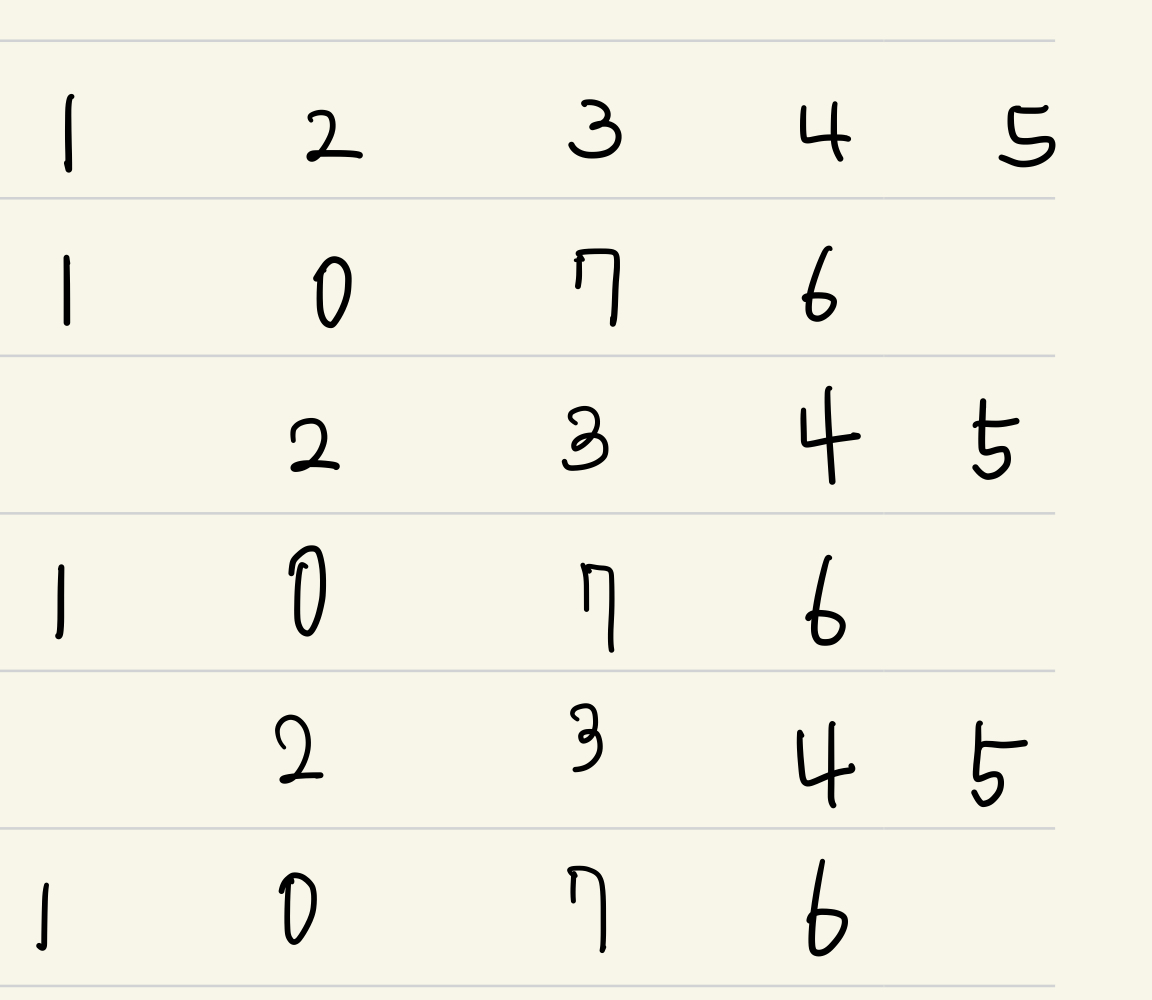 1 2 3 4 5
1 0 7 6
2 3 4 5
1 0 7 6
2 3 4 5
1 0 7 6